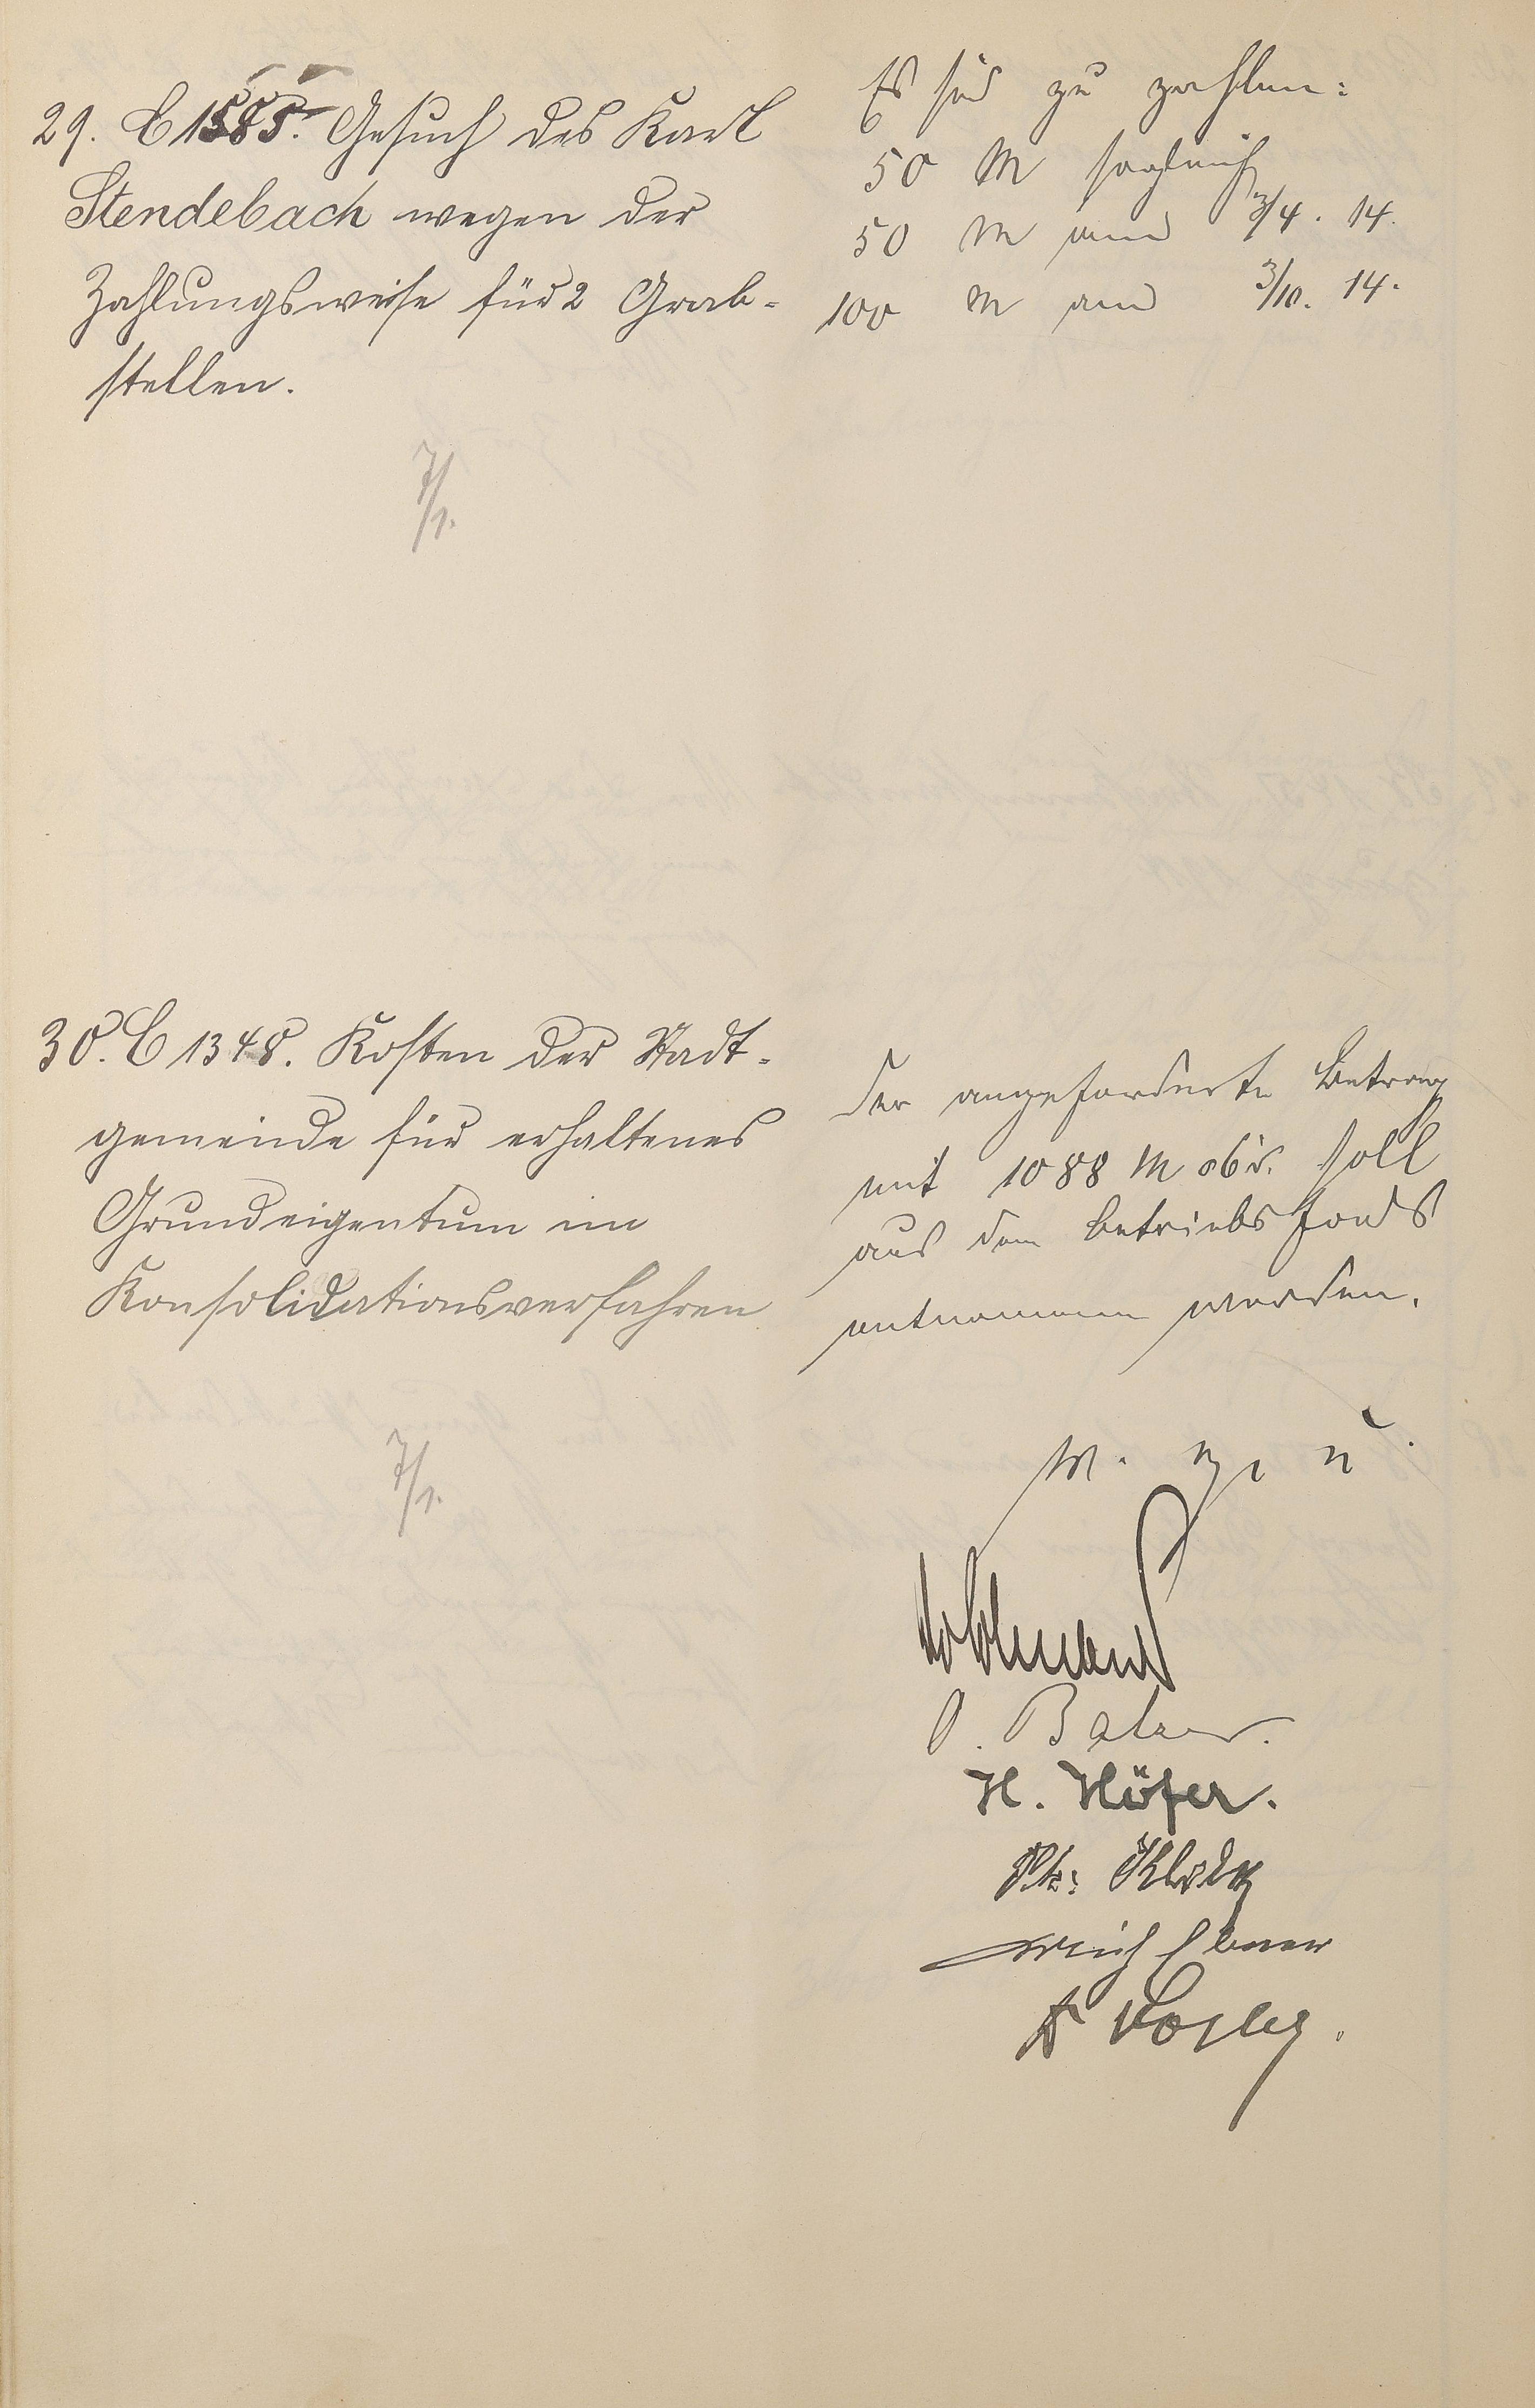 29. C 1585. Gesuch des Karl
Stendebach wegen der
Zahlungsweise für 2 Grab-
stellen.
7/1.
Es sind zu zahlen:
50 M sogleich
50 M am 3/4. 14.
100 M am 3/10. 14.
30. C 1348. Kosten der Stadt-
gemeinde für erhaltenes
Grundeigentum im
Konsolidationsverfahren
7/1.
Der angeforderte Betrag
mit 1088 M soll
aus dem Betriebsfonds
entnommen werden.
W. g. u.
O. Balzer.
H. Höfer.